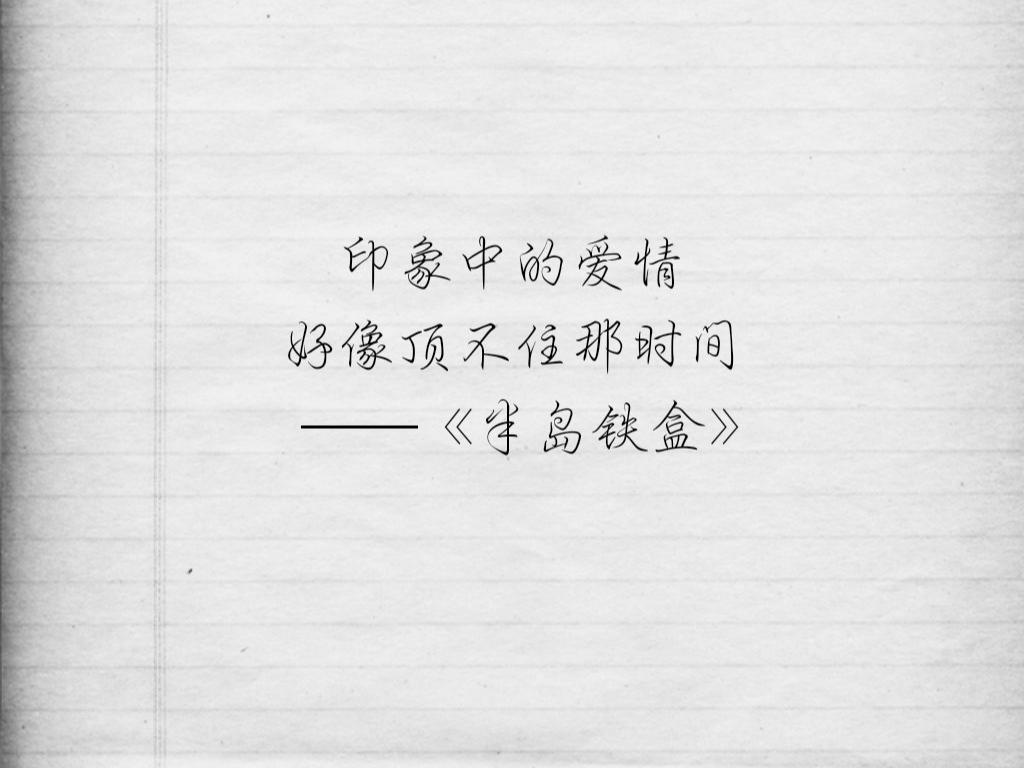 印象中的爱情
好像顶不住那时间
——《半岛铁盒》